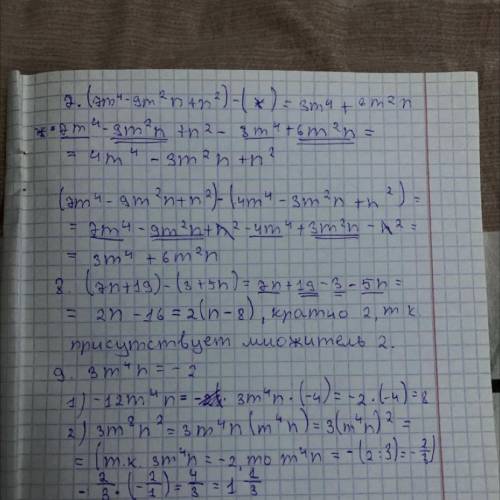 7. (7m⁴-9m²n+n²)-(*) = 3m⁴ + 6m²n
*=7m⁴-9m²n + n² - 3m⁴+6m²n =
= 4m⁴ - 3m²n + n²
(7m⁴-9m²n+n²)-(4m⁴-3m²n+n²)=
= 7m⁴-9m²n+n²-4m⁴+3m²n-n²=
= 3m⁴ + 6m²n
8. (7n+19)-(3+5n)=7n+19-3-5n=
= 2n -16=2(n-8), кратно 2, т.к
присутствует множитель 2.
9. 3m⁴n = -2
1) -12m⁴n = 3m⁴n·(-4)=-2·(-4)=8
2) 3m⁸n²=3m⁴n(m⁴n)=3(m⁴n)²=
= (т.к. 3m⁴n=-2, то m⁴n=-(2:3)=-2/3)
-2/3·(-2/1)=4/3=1 1/3